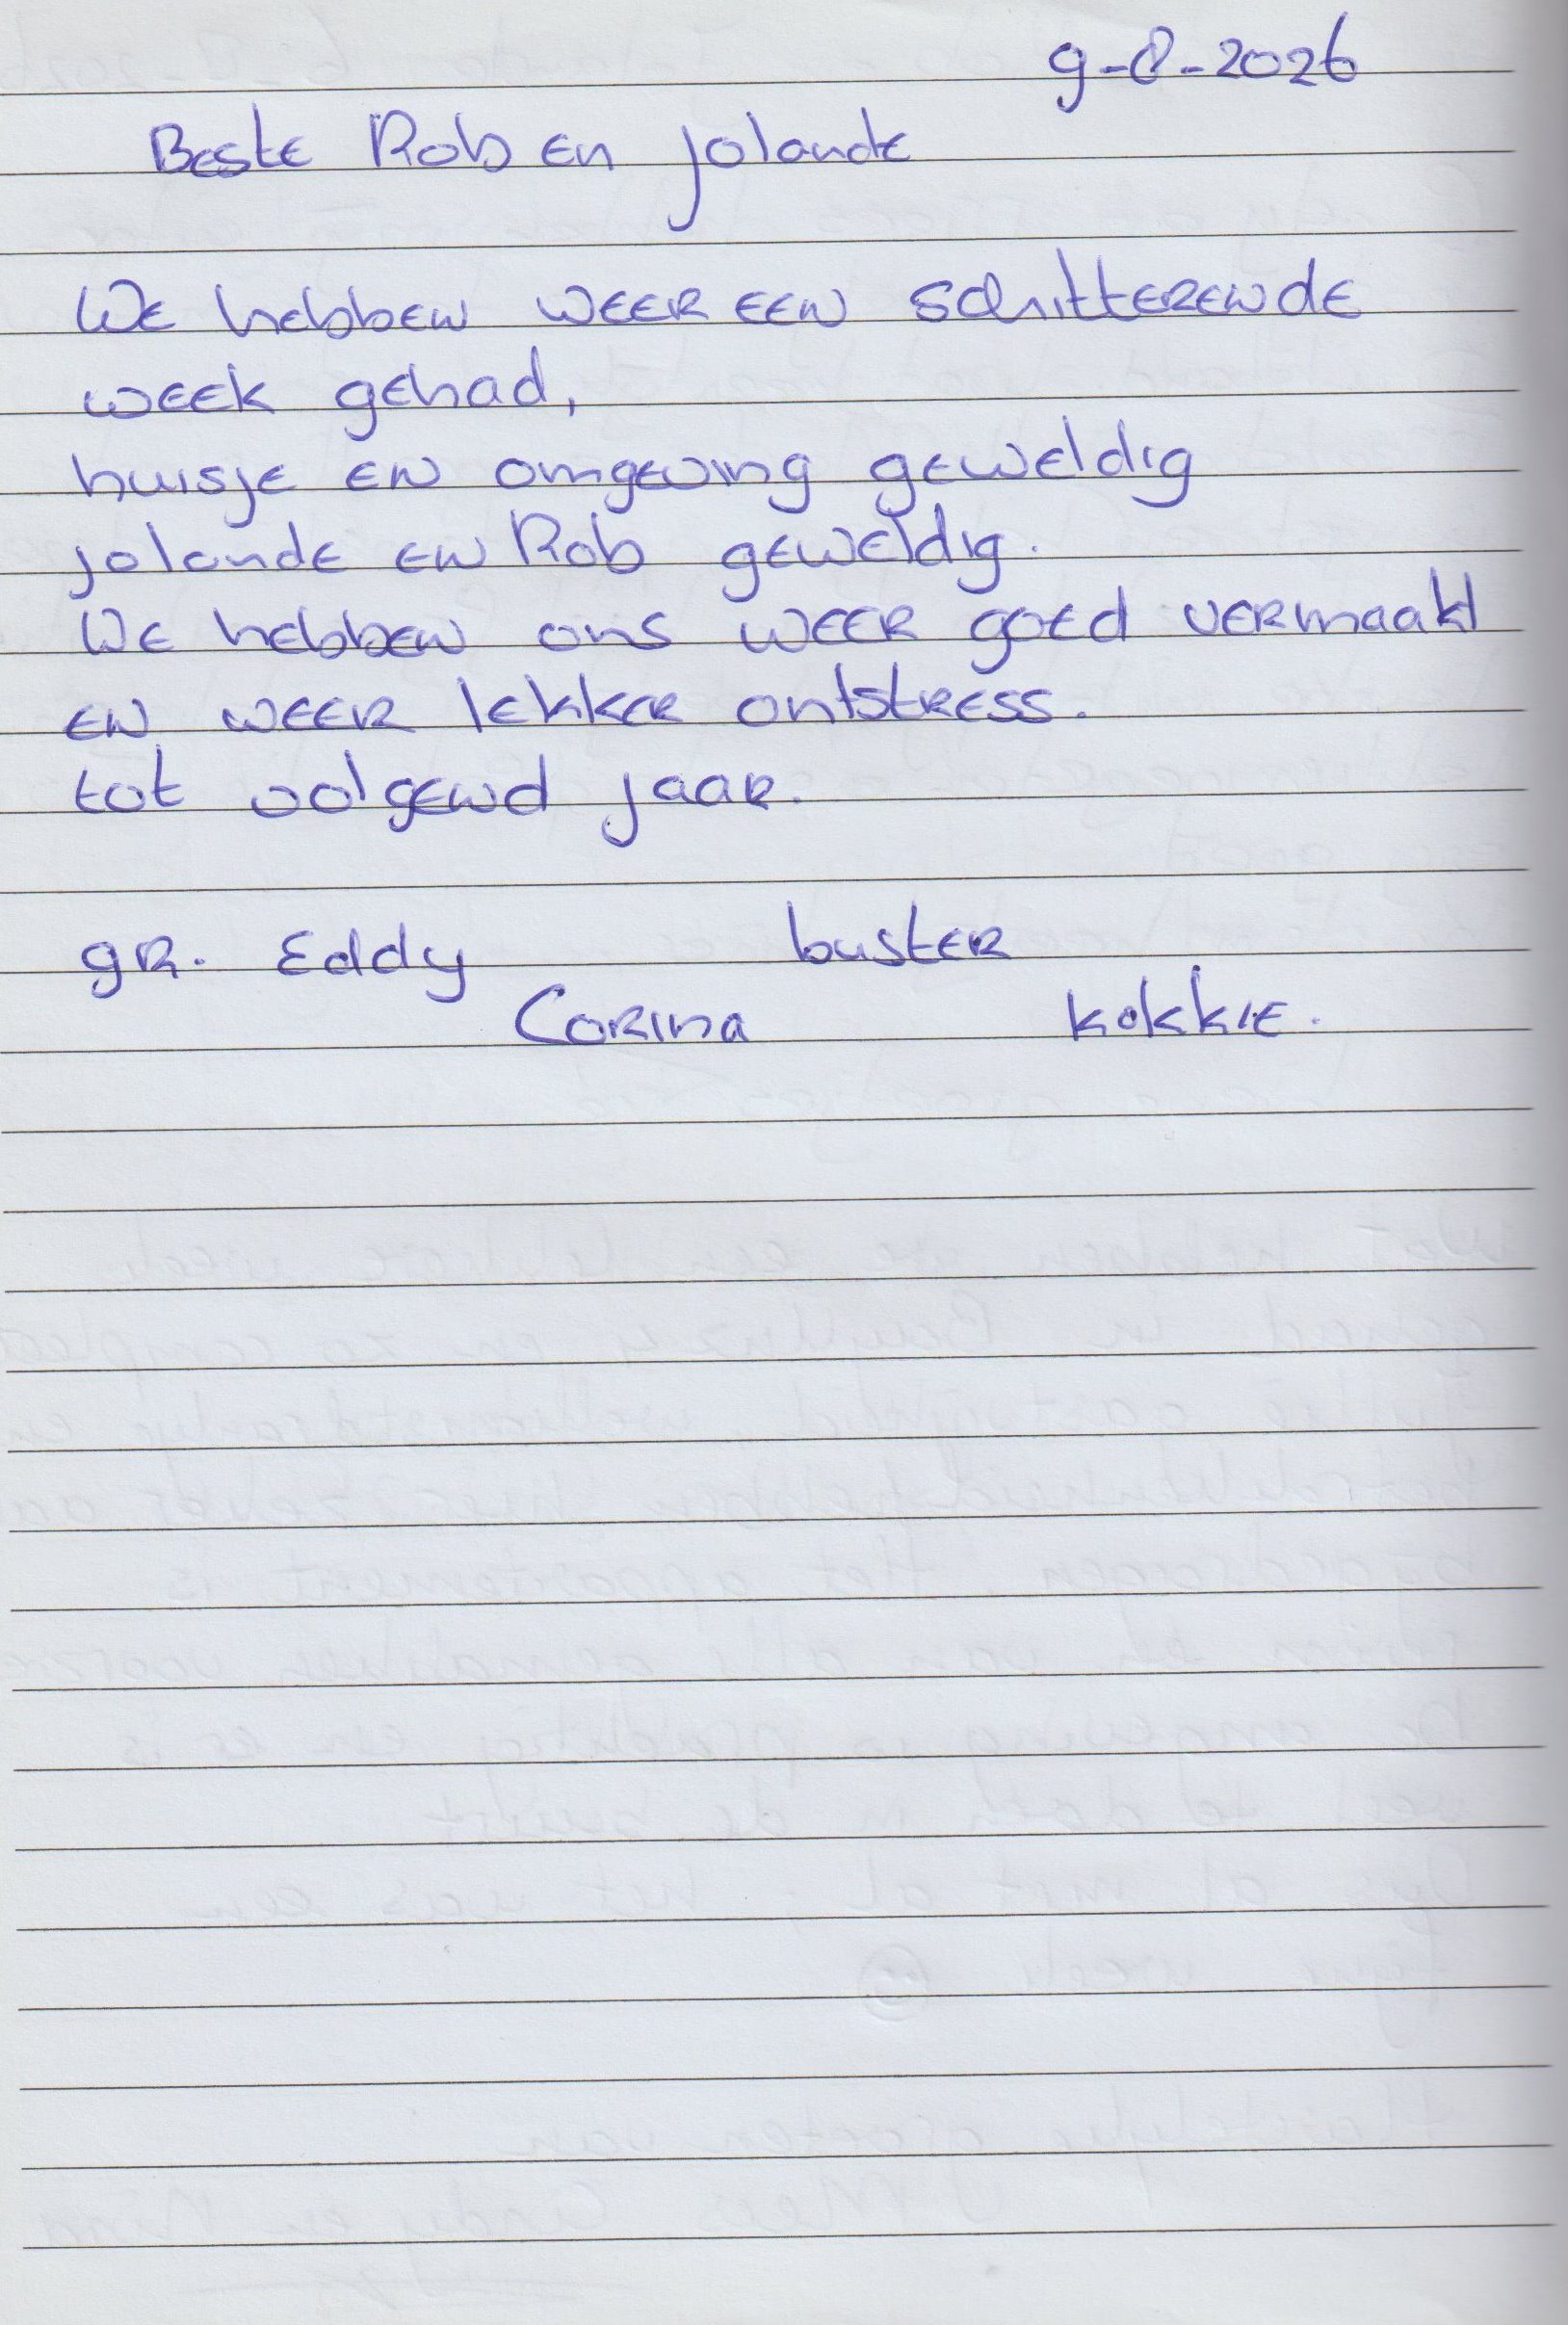 9-8-2026
Beste Rob en Jolande
We hebben weer een schitterende
week gehad,
huisje en omgeving geweldig
Jolande en Rob geweldig.
We hebben ons weer goed vermaakt
en weer lekker ontstress.
tot volgend jaar.
gr. Eddy buster
Corina kokkie.